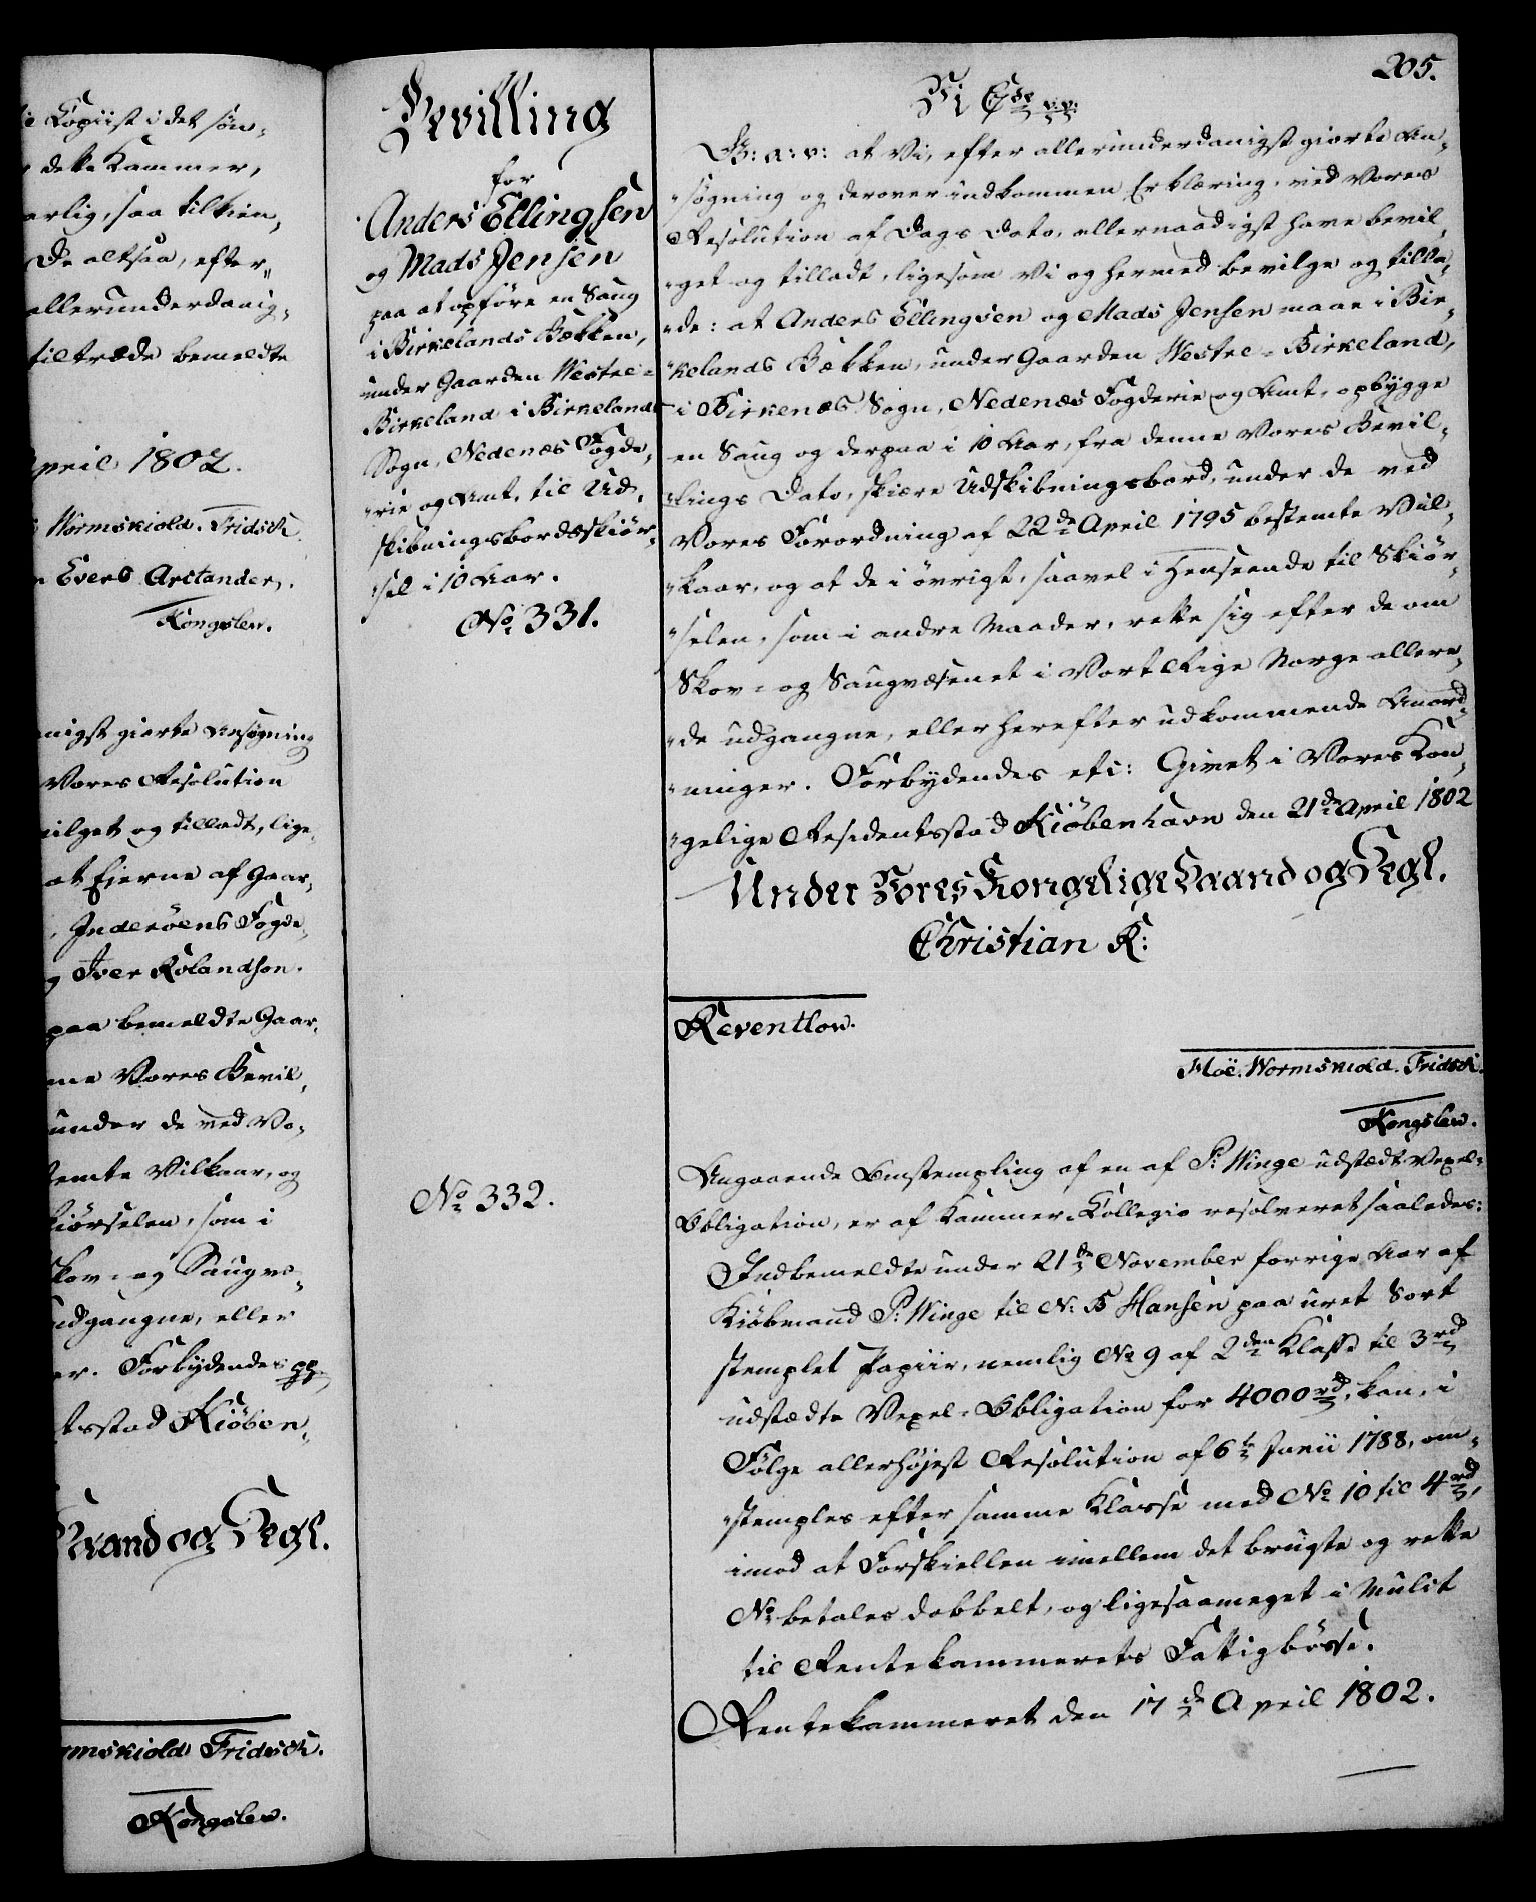 e Copiist i det søn-
dette Kammer,
arlig, saa tilkien-
De altsaa, efter
allerunderdanig-
tiltræde bemeldte
April 1802.
Wormskiold. Fridsch.
Evers Arctander.
Kongslew.
nigst giorte Ansøgning
Vores Resolution
vilget og tilladt, lige-
at Eierne af Gaar-
Inderöens Fogde-
g Iver Rolandsøn.
paa bemeldte Gaar-
ne Vores Bevil-
under de ved Vo-
temte Vilkaar, og
kiörselen, som i
Skov- og Saugvæ-
udgangne, eller
er. Forbydendes pp
tsstad Kiöben-
Haand og Segl.
rmskiold Fridsch.
Kongslew.
Bevilling
for
Anders Ellingsen
og Mads Jensen
paa at opföre en Saug
i Birkelands Bækken,
under Gaarden Westre-
Birkeland i Birkelands
Sogn, Nedenæs Fogde-
rie og Amt, til Ud-
skibningsbordeskiör-
sel i 10 Aar.
No 331.
No 332.
205.
Vi C 7de p.p:
G: a: v: at Vi, efter allerunderdanigst giorte An-
søgning og derover indkommen Erklæring, ved Vores
Resolution af Dags Dato, allernaadigst have bevil-
get og tilladt, ligesom Vi og hermed bevilge og tilla-
de: at Anders Ellingsen og Mads Jensen maae i Bir-
kelands Bækken, under Gaarden Westre-Birkeland,
i Birkenæs Sogn, Nedenæs Fogderie og Amt, opbygge
en Saug og derpaa i 10 Aar, fra denne Vores Bevil-
lings Dato, skiære Udskibningsbord, under de ved
Vores Forordning af 22de April 1795 bestemte Vil-
kaar, og at de i övrigt, saavel i Henseende til Skiör-
selen, som i andre Maader, rette sig efter de om
Skov- og Saugvæsenet i Vort Rige Norge allere-
de udgangne, eller herefter udkommende Anord-
ninger. Forbydendes etc: Givet i Vores Kon-
gelige Residentsstad Kiöbenhavn den 21de April 1802
Under Vores Kongelige Haand og Segl.
Christian R:
Reventlow.
Moë. Wormskiold. Fridsch.
Kongslew.
Angaaende Omstempling af en af P: Winge udstædt Vexel-
Obligation, er af Kammer-Kollegio resolveret saaledes:
Indbemeldte under 21de November forrige Aar af
Kiöbmand P: Winge til N: B Hansen paa uret Sort
stemplet Papiir, nemlig No 9 af 2den Klasse til 3rd
udstædte Vexel-Obligation for 4000rd, kan, i
Fölge allerhöjest Resolution af 6te Junii 1788, om-
stemples efter samme Klasse med No 10 til 4rd,
imod at Forskiellen imellem det brugte og rette
No betales dobbelt, og ligesaameget i Mulct
til Rentekammerets Fattigbösse.
Rentekammeret den 17de April 1802.